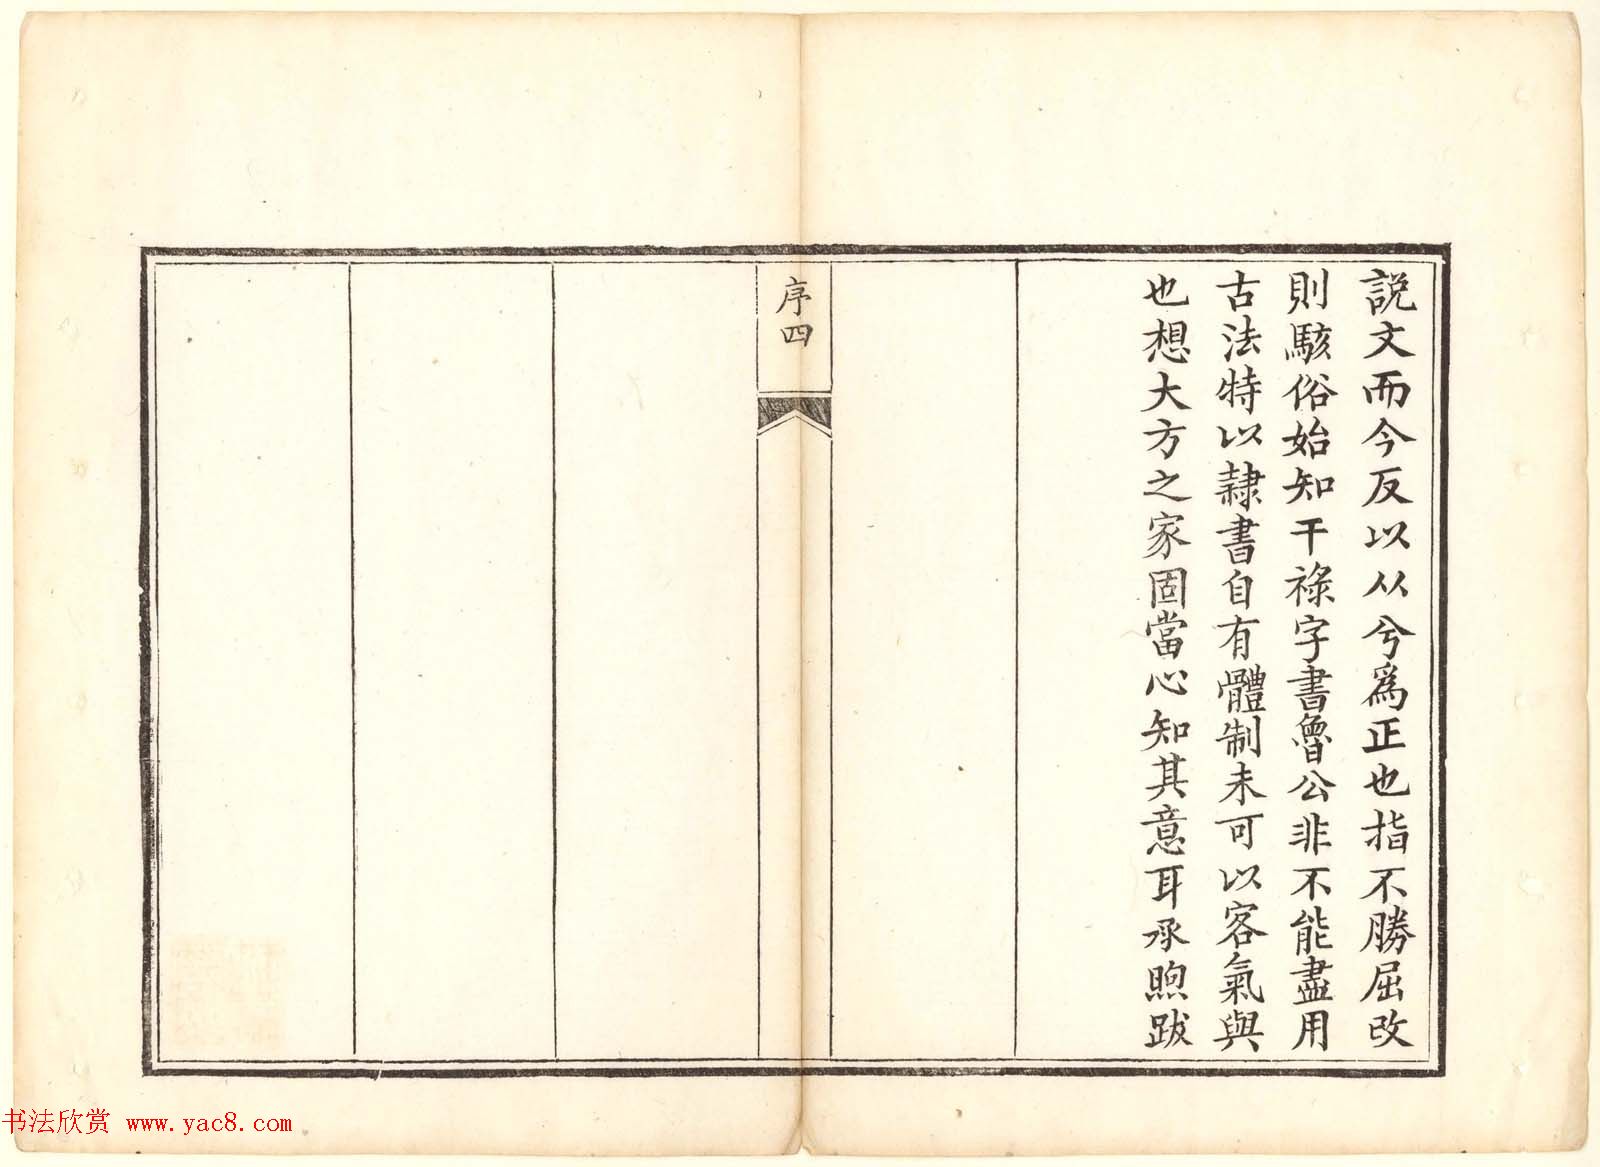 説文而今反以从兮爲正也指不勝屈改
則駭俗始知干祿字書魯公非不能盡用
古法特以隷書自有體制未可以客氣與
也想大方之家固當心知其意耳承煦跋
序四
书法欣赏 www.yac8.com